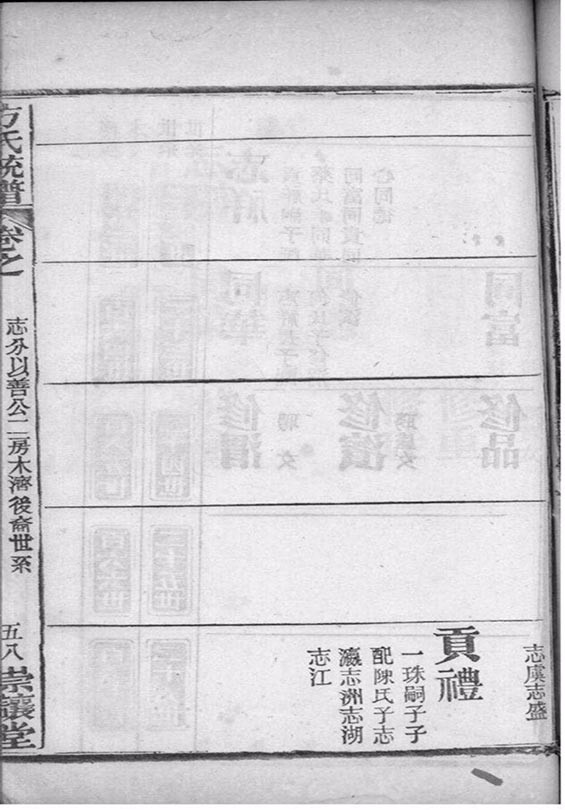 志虞志盛
貢禮
一珠嗣子子
配陳氏子志
瀛志洲志湖
志江
方氏統譜
卷之
志分以善公二房木濟後裔世系
五八
崇讓堂